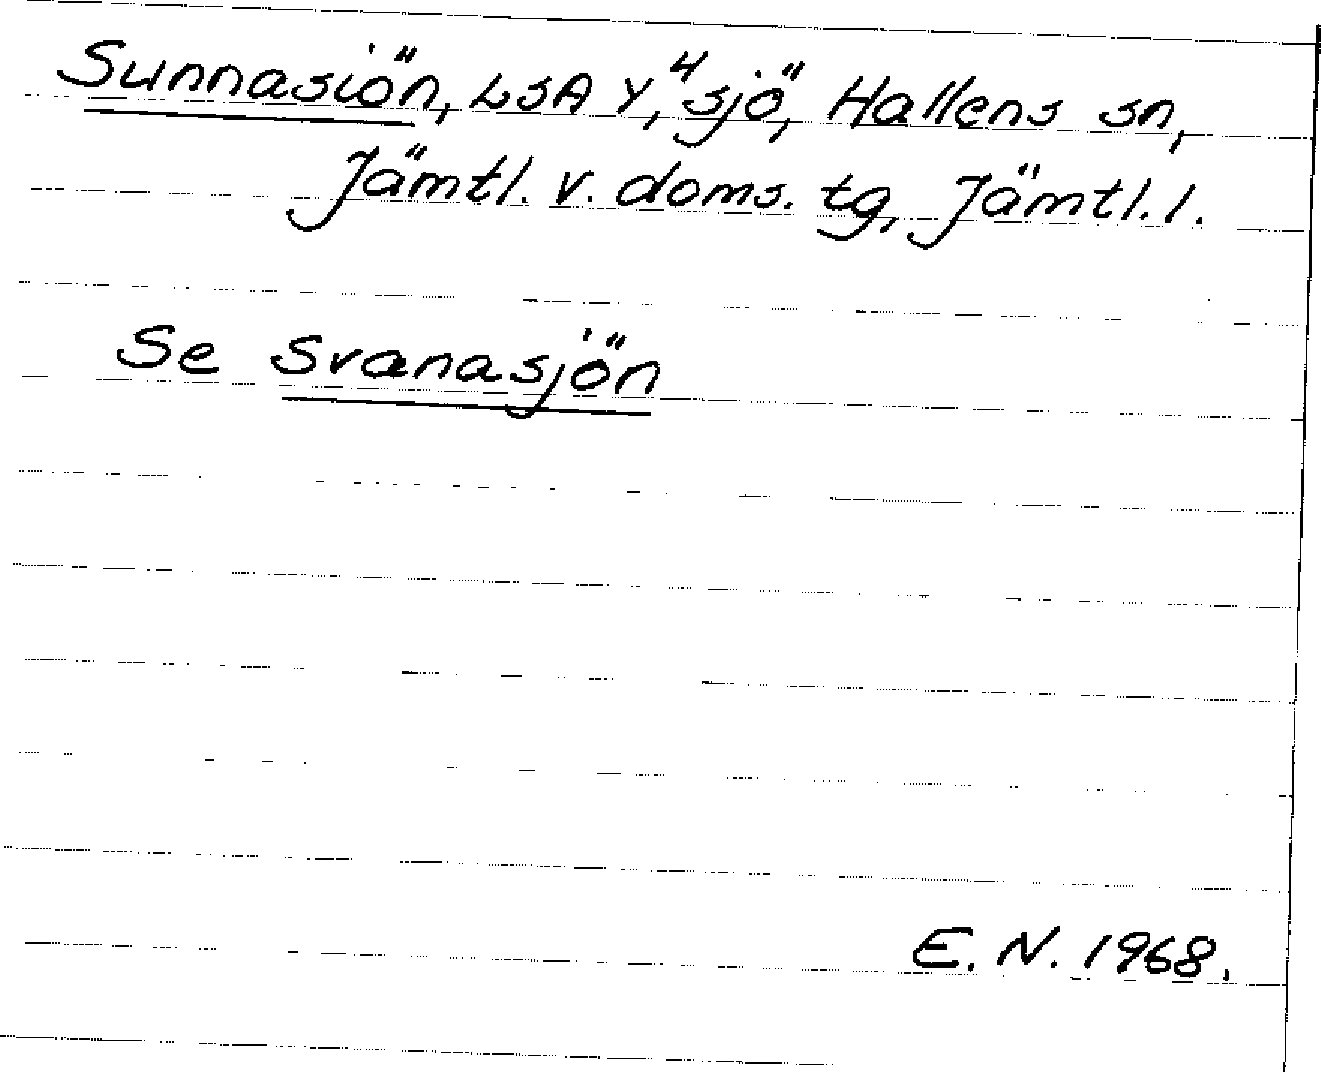 Sunnasiön, LSA Y, "sjö", Hallens sn,
Jämtl. v. doms. tg, Jämtl. l.
Se Svanasjön
E. N. 1968.